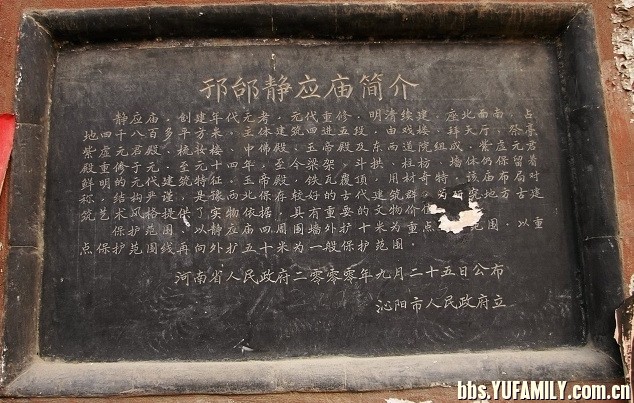 邘邰静应庙简介
静应庙,创建年代无考,元代重修,明清续建,座北面南,占
地四千八百多平方米,主体建筑四进五段,由戏楼、拜天厅、祭台
紫虚元君殿、梳妆楼、中佛殿、玉帝殿及东西道院组成。紫虚元君
殿重修于元至元十四年,至今梁架、斗拱、柱枋、墙体仍保留着
鲜明的元代建筑特征,玉帝殿,铁瓦覆顶,用材奇特,该庙布局对
称,结构严谨,是豫西北保存较好的古代建筑群,为研究地方古建
筑艺术风格提供了实物依据,具有重要的文物价
保护范围:以静应庙四周围墙外扩十米为重点 范围,以重
点保护范围线再向外扩五十米为一般保护范围。
河南省人民政府二零零零年九月二十五日公布
沁阳市人民政府立
bbs.YUFAMILY.com.cn